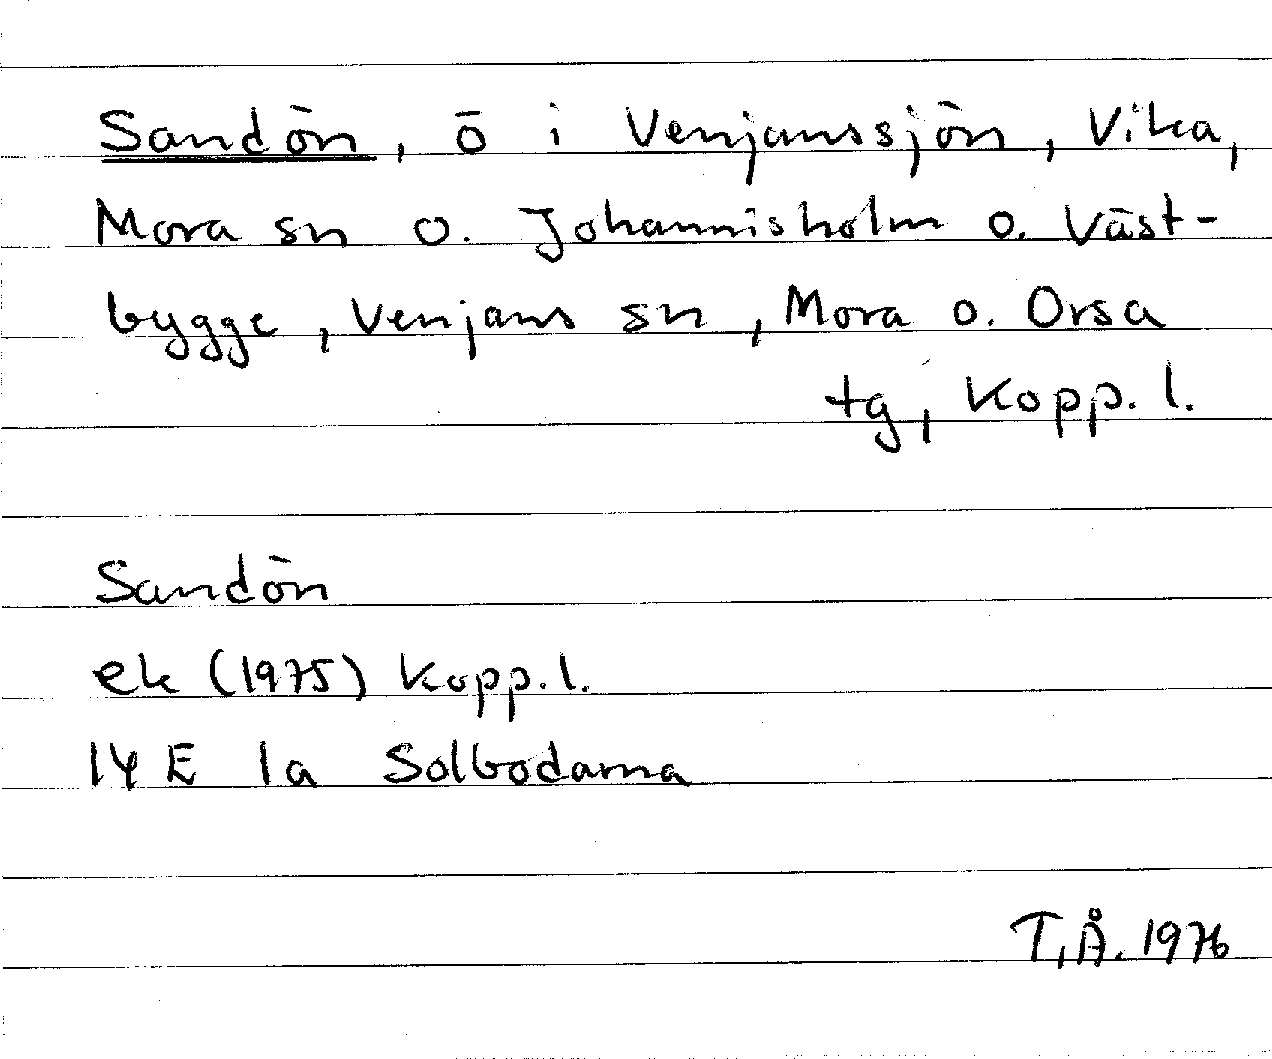 Sandön, ö i Venjanssjön, Vika,
Mora sn o. Johannisholm o. Väst-
bygge, Venjans sn, Mora o. Orsa
tg, Kopp. l.
Sandön
ek (1975) Kopp. l.
14 E 1a Solbodarna
T.Å. 1976